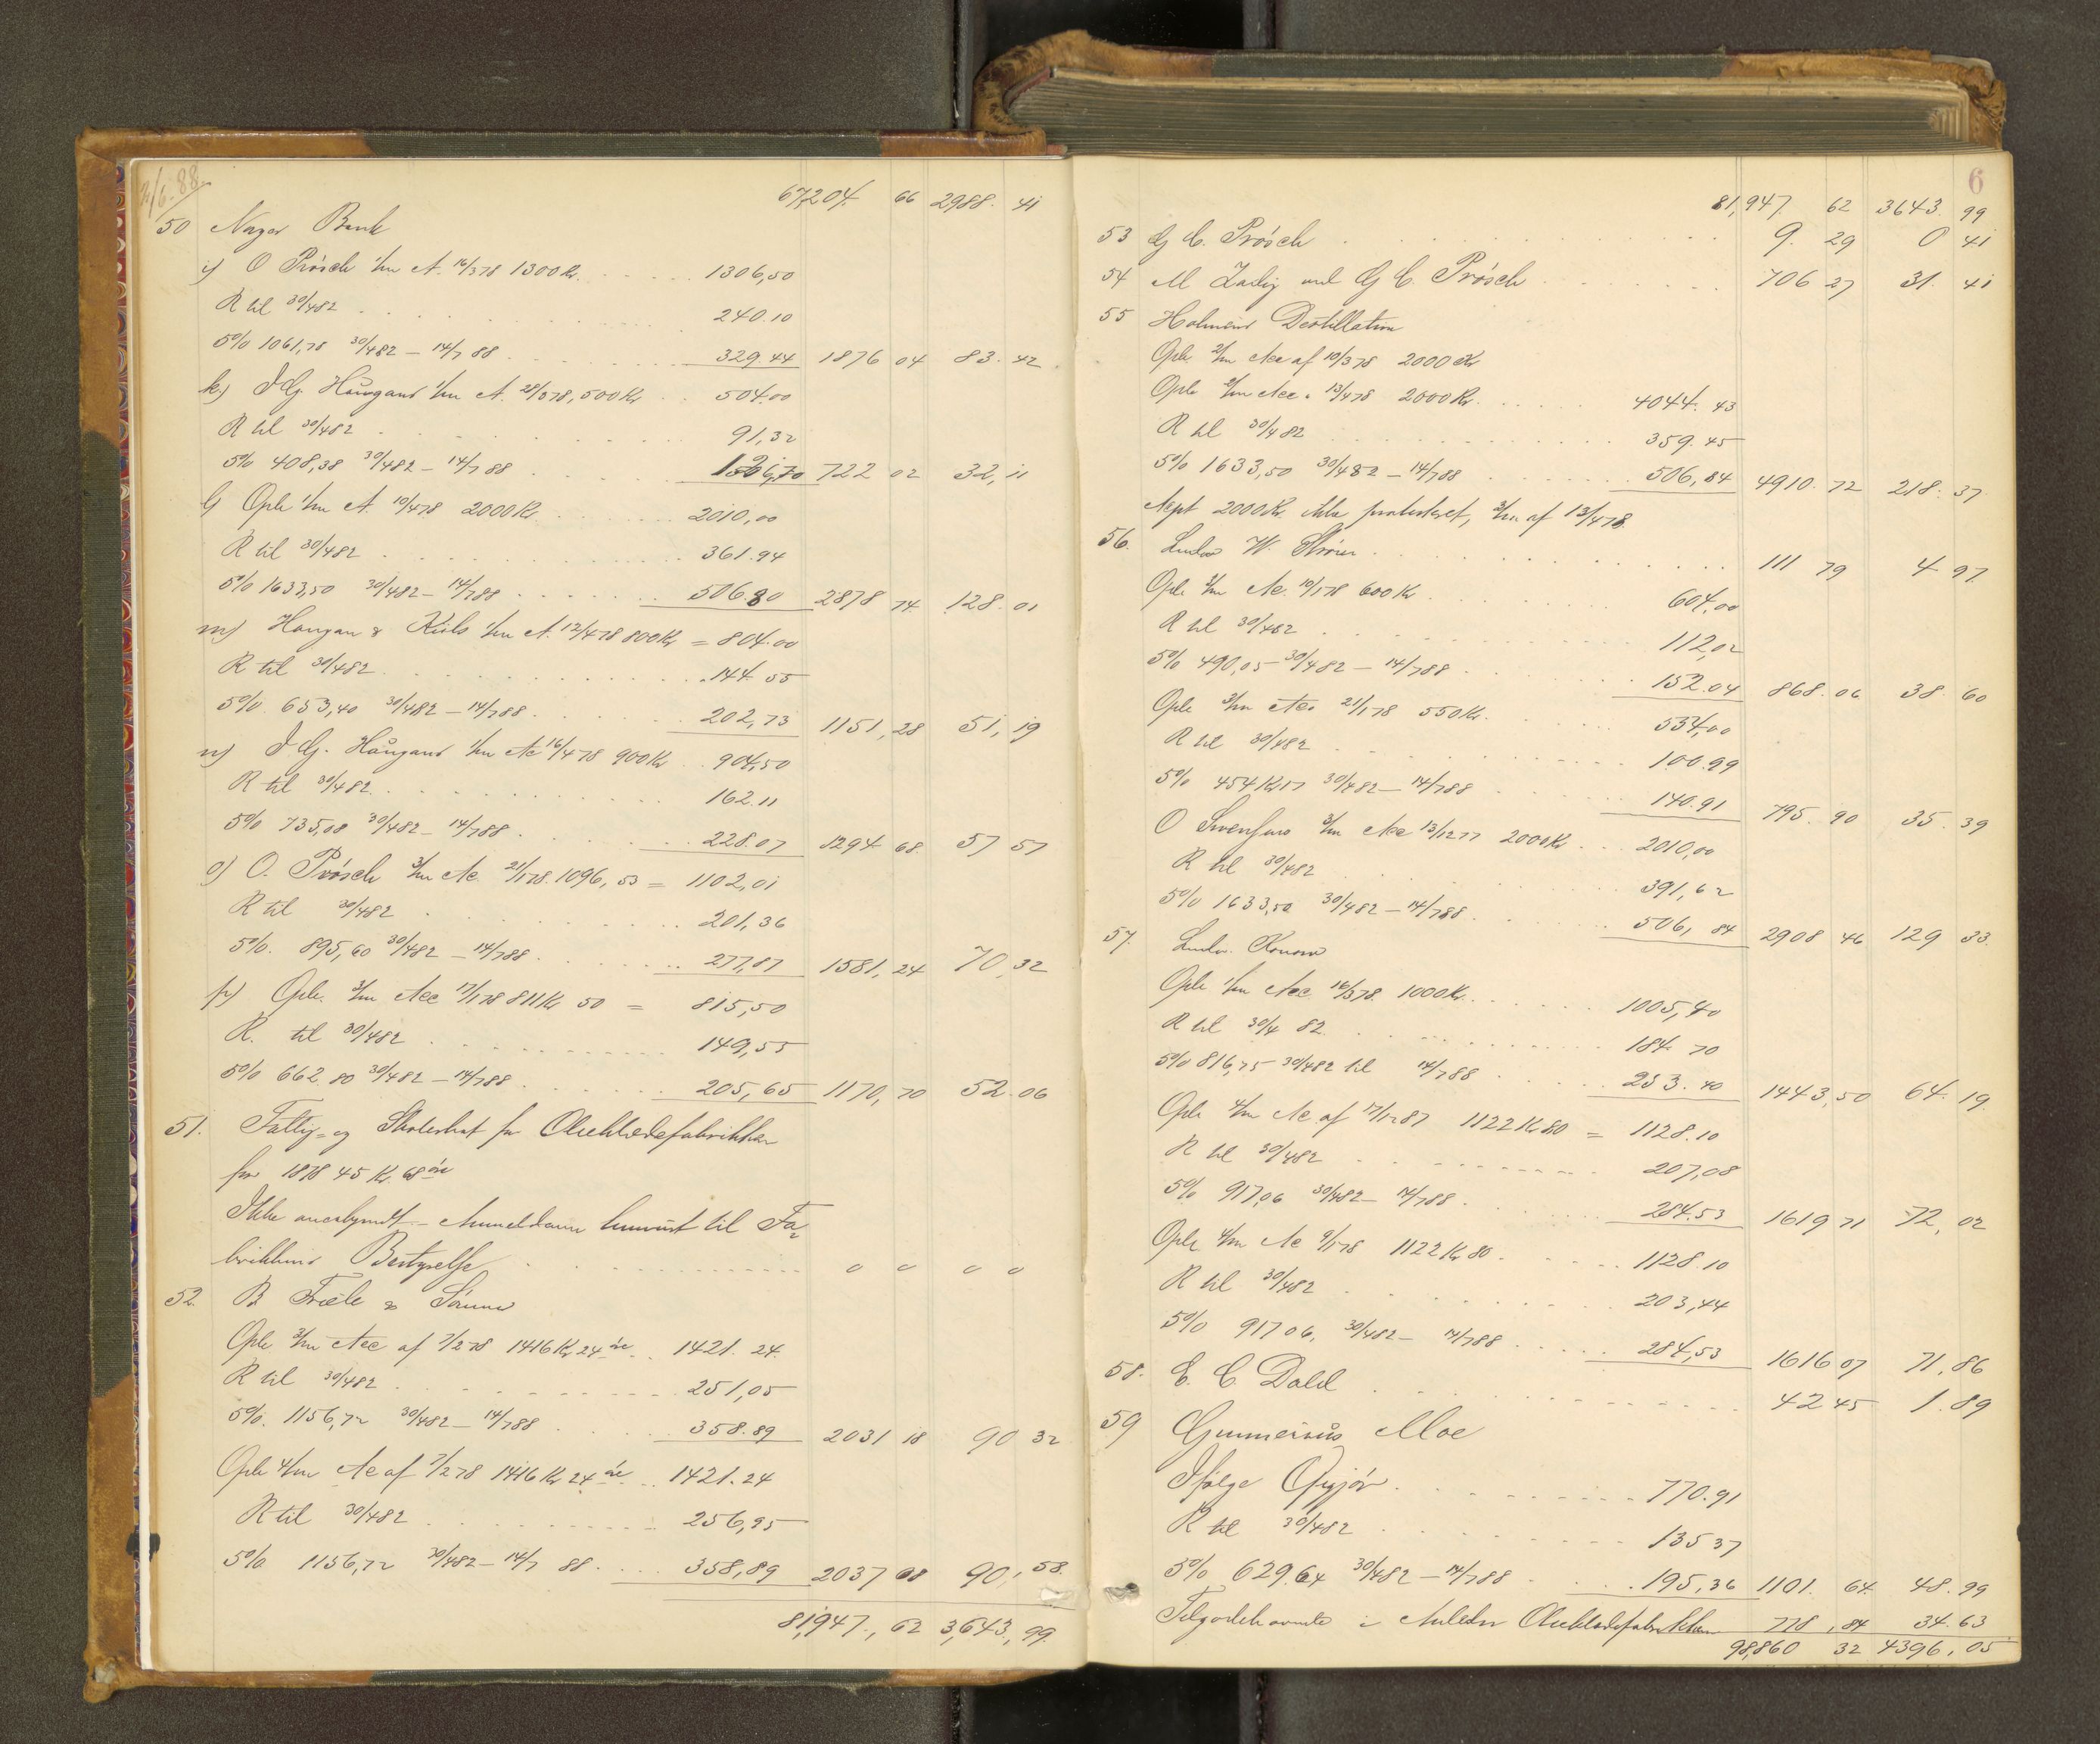 2/6. 88.
67,204. 66 2988. 41
50 Norges Bank
i) O Prösch 1/m A. 16/3 78 1300 Kr. 1306,50
R til 30/4 82 240.10
5% 1061,78 30/4 82 — 14/7 88 329.44 1876 04 83. 42
k.) J Gj. Haugans 1/m A. 28/3 78, 500 Kr 504.00
R til 30/4 82 91,32
5% 408,38 30/4 82 — 14/7 88 126,70 722 02 32, 11
l) Ople 1/m A. 10/4 78 2000 Kr 2010,00
R til 30/4 82 361.94
5% 1633,50 30/4 82 — 14/7 88 506.80 2878 74 128. 01
m) Haugan & Kiils 1/m A. 12/4 78 800 Kr = 804.00
R til 30/4 82 144. 55
5% 653,40 30/4 82 — 14/7 88 202,73 1151, 28 51, 19
n) J Gj. Haugans 1/m Ac 16/4 78 900 Kr 904,50
R til 30/4 82 162.11
5% 735,08 30/4 82 — 14/7 88 228.07 1294 68. 57 57
o) O. Prösch 3/m Ac. 21/1 78. 1096, 53 = 1102,01
R til 30/4 82 201,36
5%. 895,60 30/4 82 — 14/7 88 277,87 1581, 24 70, 32
p) Ople. 3/m Acc 17/1 78 811 Kr 50 = 815,50
R. til 30/4 82 149,55
5% 662 80 30/4 82 — 14/7 88 205,65 1170, 70 52. 06
51. Fattig- og Skoleskat for Olieklædefabrikken
for 1878 45 Kr. 68 öre
Ikke anerkjendt — Anmelderen henvist til Fa-
brikkens Bestyrelse 0 0 0 0
52. B Friele & Sönner
Ople 3/m Acc af 7/2 78 1416 Kr 24 öre 1421. 24.
R til 30/4 82 251,05
5%. 1156,72 30/4 82 — 14/7 88 358.89 2031 18 90 32
Ople 4/m Ac af 7/2 78 1416 Kr 24 öre 1421.24
R til 30/4 82 256,95
5% 1156,72 30/4 82 — 14/7 88 358,89 2037 08 90, 58.
81,947., 62 3,643., 99.
6
81,947. 62 3643. 99
53 G C. Prösch 9. 29 0 41
54 M Zadig ved G C. Prösch 706 27 31. 41
55 Holmens Destillation
Ople 2/m Acc af 10/3 78 2000 Kr
Ople 2/m Acc. 13/4 78 2000 Kr. 4044. 43
R til 30/4 82 359. 45
5% 1633,50 30/4 82 — 14/7 88 506,84 4910. 72 218. 37
Acpt 2000 Kr. ikke protesteret, 3/m af 13/4 78.
56. Ludv W. 111 79 4 97
Ople 3/m Ac. 10/1 78 600 Kr 604,00
R til 30/4 82 112,02
5% 490,05 30/4 82 — 14/7 88 152.04 868. 06 38. 60
Ople 3/m Acc 21/1 78 550 Kr. 554,00
R til 30/4 82 100.99
5% 454 Kr 17 30/4 82 — 14/7 88 140.91 795. 90 35. 39
O Svensens 3/m Acc 13/12 77 2000 Kr 2010,00
R til 30/4 82 391,62
5% 1633,50 30/4 82 — 14/7 88 506, 84 2908 46 129 33.
57. Ludv. Konow
Ople 1/m Acc 16/3 78. 1000 Kr. 1005,40
R til 30/4 82. 184. 70
5% 816,75 30/4 82 til 14/7 88 253. 40 1443, 50 64. 19.
Ople 4/m Ac. af 17/12 87 1122 Kr 80 = 1128.10
R til 30/4 82 207,08
5% 917,06 30/4 82 — 14/7 88 284.53 1619 71 72, 02
Ople 4/m Ac 9/1 78 1122 Kr 80 1128.10
R til 30/4 82 203,44
5% 917 06, 30/4 82 — 14/7 88 284,53 1616 07 71, 86
58. E. C Dahl 42 45 1.89
59 Gunnerius Moe
Ifølge Opgjör 770.91
R til 30/4 82 135 37
5% 629.64 30/4 82 — 14/7 88 195,36 1101. 64. 48. 99
Tilgodekomende i Anledn Olieklædefabrikken 778, 84 34. 63
98,860 32 4396, 05